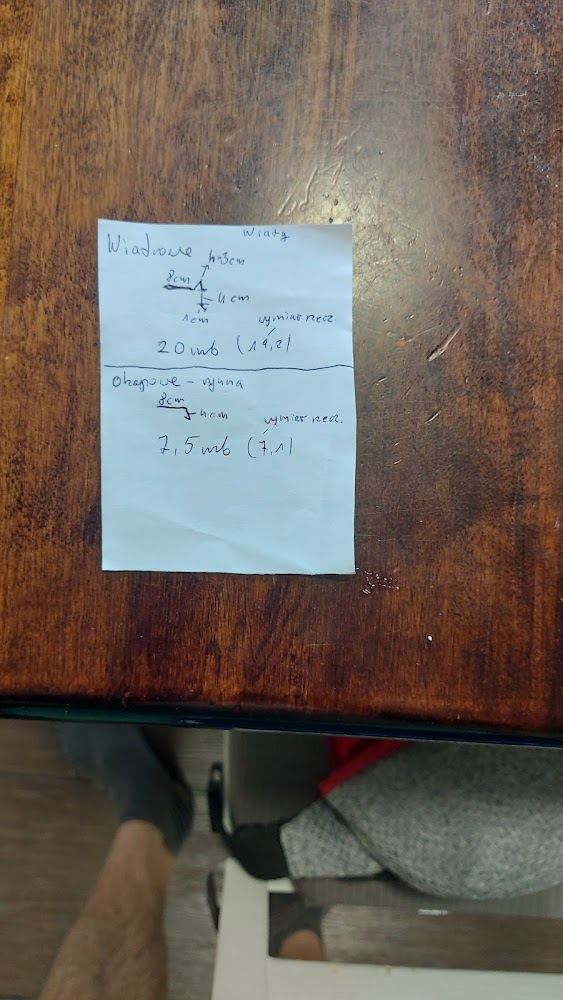 Wiaty
Wiatrowe
h=3cm
8cm
4cm
1cm
wymiar rzecz.
20mb (19,2)
Okapowe - rynna
8cm
4cm
wymiar rzecz.
7,5mb (7,1)